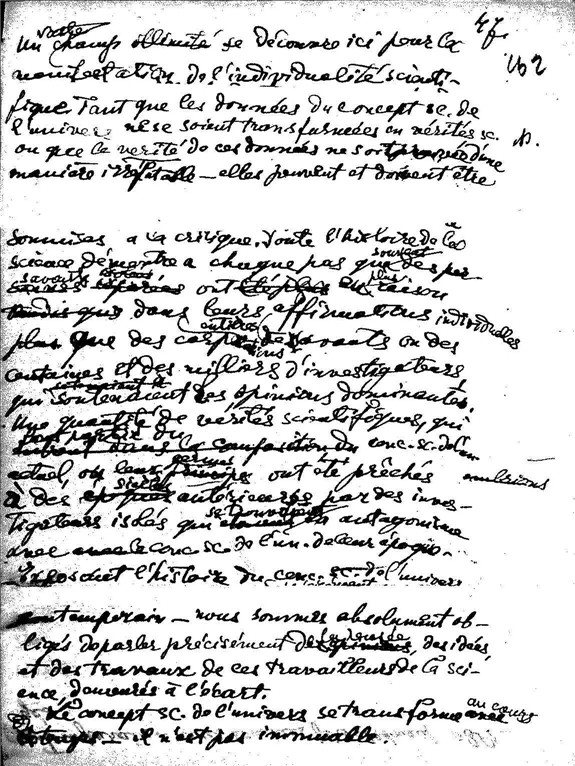 47.
162
vaste
Un champ illimité se découvre ici pour la
manifestation de l'individualité scienti-
fique. Tant que les données du concept sc. de
l'univers ne se soient transformées en vérités sc.
ou que la vérité de ces données ne soit prouvée d'une
manière irréfutable — elles peuvent et doivent être
soumises à la critique. Toute l'histoire de la
souvent
science démontre à chaque pas que des per-
savants isolés plus
ont raison
tandis que dans leurs affirmations individuelles
entiers
plus que des corps de savants ou des
centaines et des milliers d'investigateurs,
qui soutenaient des opinions dominantes.
Une quantité de vérités scientifiques, qui
font partie du
entrent dans la composition du conc. sc. de l'un.
germes
actuel, ou leurs principes ont été prêchés
siècles
à des époques antérieures par des inves-
se trouvaient
tigateurs isolés qui en antagonisme
avec le conc. sc. de l'un. de leur époque.
Exposant l'histoire du conc. sc. de l'univers
contemporain — nous sommes absolument ob-
ligés de parler précisément des opinions, des idées
et des travaux de ces travailleurs de la sci-
ence, demeurés à l'écart.
Le concept sc. de l'univers se transforme avec
au cours
il n'est pas immuable.